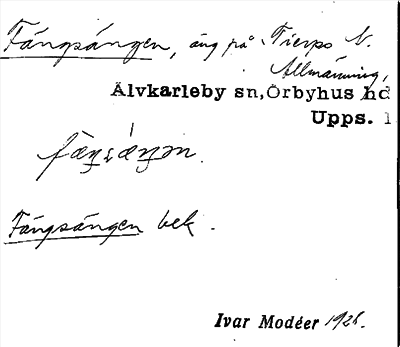 Fängsängen, äng på Tierps N.
Allmänning,
Älvkarleby sn, Örbyhus hd
Upps. l
Fängsängen bek.
Ivar Modéer 1926.